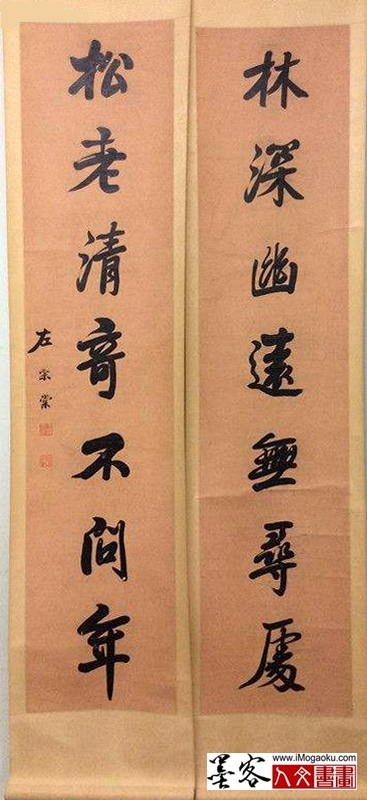 林深幽遠無尋處
松老清奇不問年
左宗棠
www.iMogaoku.com
墨客
人文書畫